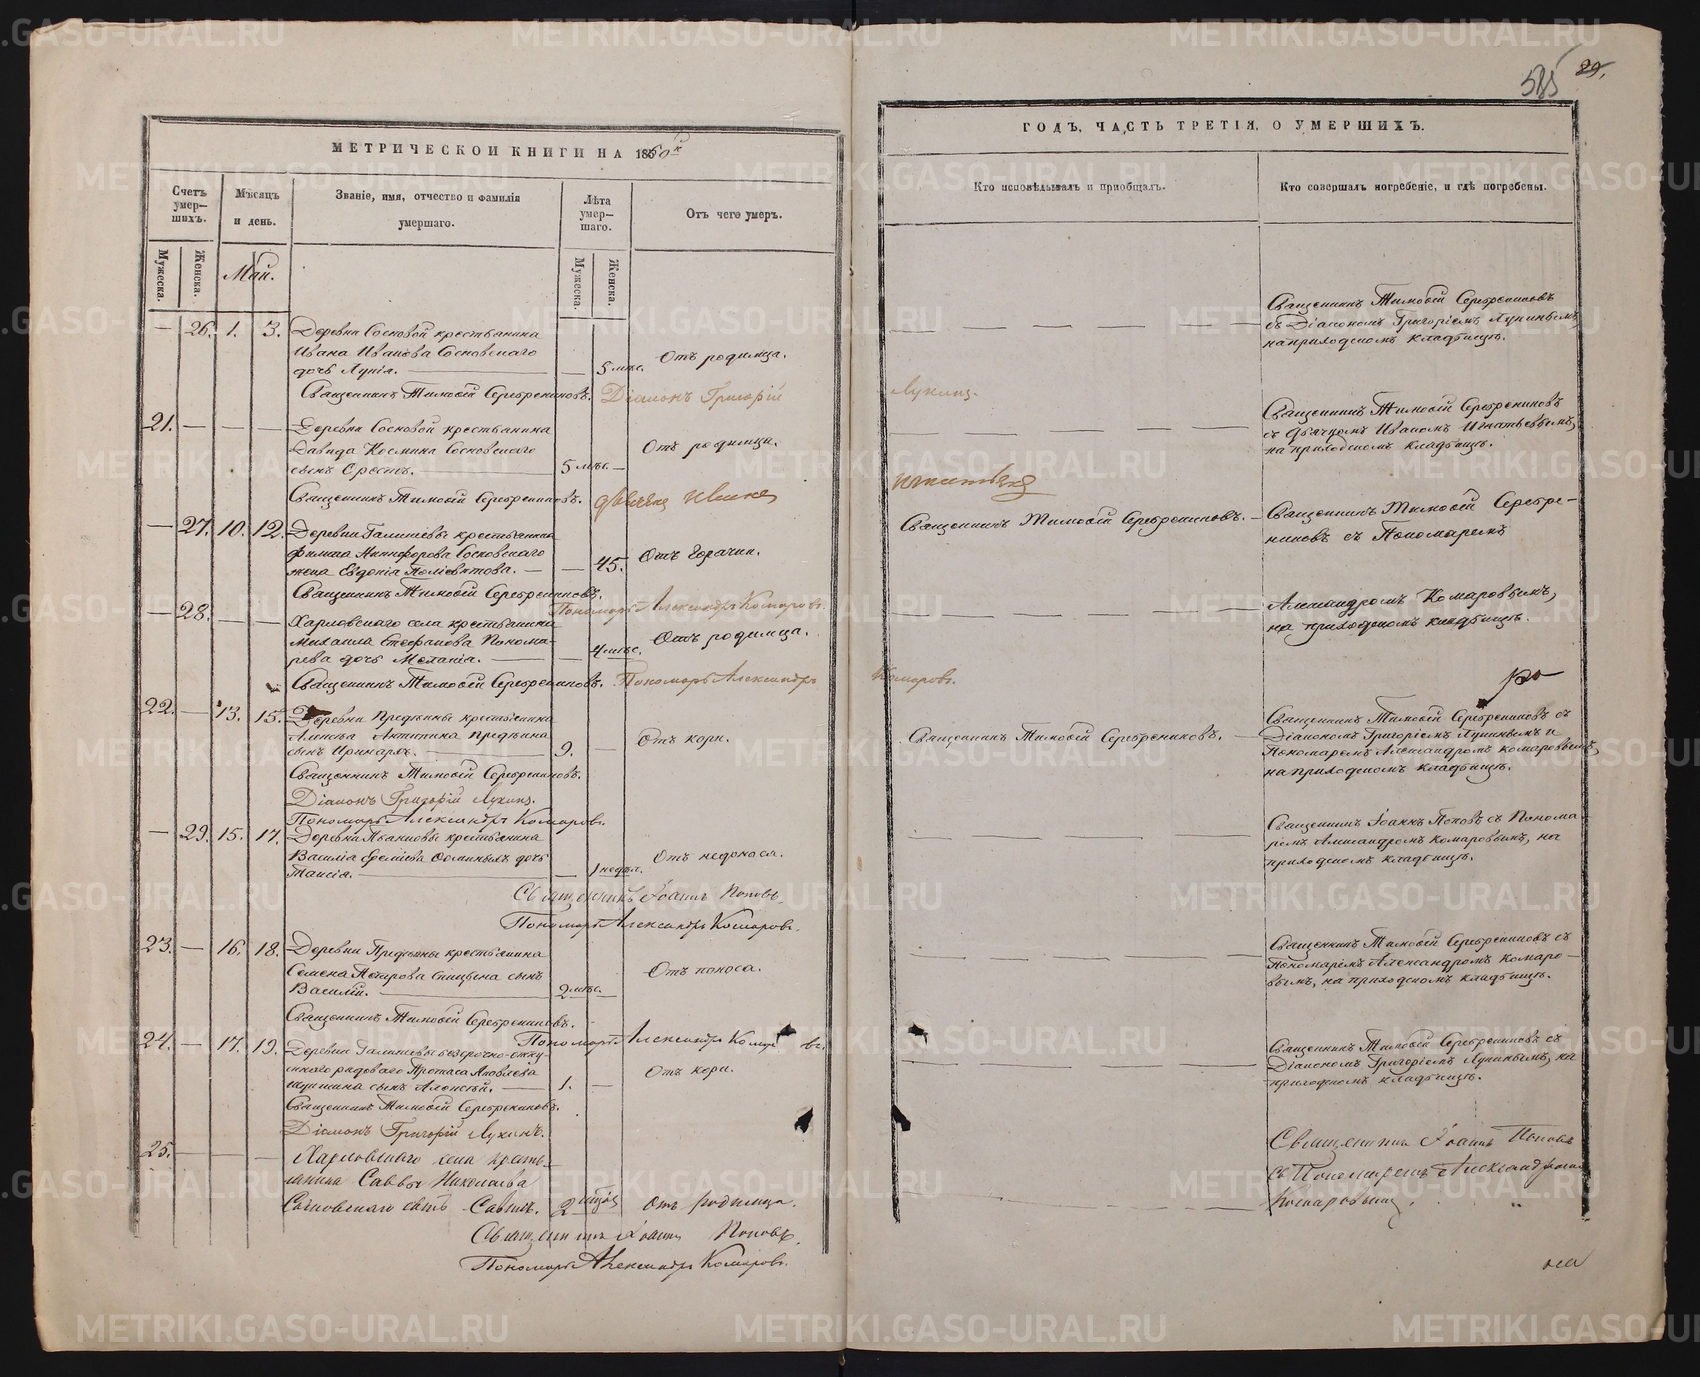 585 29.
МЕТРИЧЕСКОЙ КНИГИ НА 1860й
ГОДЪ, ЧАСТЬ ТРЕТІЯ, О УМЕРШИХЪ.
Счетъ умер-шихъ.
Мѣсяцъ и день.
Званіе, имя, отчество и фамилія умершаго.
Лѣта умер-шаго.
Отъ чего умеръ.
Кто исповѣдывалъ и пріобщалъ.
Кто совершалъ погребеніе, и гдѣ погребены.
Мужеска.
Женска.
Май.
Мужеска.
Женска.
— 26. 1. 3. Деревни Сосновой крестьянина
Ивана Иванова Сосновскаго
дочь 5 мѣс. Отъ родимца.
Священникъ Тимоѳей Серебрениковъ
съ Діакономъ Григоріемъ Лукинымъ,
на приходскомъ кладбищѣ.
Священникъ Тимоѳей Серебрениковъ. Діаконъ Григорій Лукинъ.
21. — — — Деревни Сосновой крестьянина
Давида Космина Сосновскаго
сынъ Орестъ. 5 мѣс. — Отъ родимца.
Священникъ Тимоѳей Серебрениковъ
съ дьячкомъ Иваномъ Игнатьевымъ,
на приходскомъ кладбищѣ.
Священникъ Тимоѳей Серебрениковъ. дьячекъ Иванъ Игнатьевъ
— 27. 10. 12. Деревни Галишевы крестьянина
Филипа Никифорова Сосновскаго
жена Евдокія Поліевктова. — 45. Отъ горячки.
Священникъ Тимоѳей Серебрениковъ.
Священникъ Тимоѳей Серебре-
никовъ съ Пономаремъ
Александромъ Комаровымъ,
на приходскомъ кладбищѣ.
Священникъ Тимоѳей Серебрениковъ.
Пономарь Александръ Комаровъ.
— 28. — — Харловскаго села крестьянина
Михаила Стефанова Понома-
рева дочь Меланія. 4 мѣс. Отъ родимца.
Священникъ Тимоѳей Серебрениковъ. Пономарь Александръ Комаровъ.
22. — 13. 15. Деревни Предѣины крестьянина
Антипина Предѣина
сынъ Иринархъ. 9. — Отъ кори.
Священникъ Тимоѳей Серебрениковъ.
Священникъ Тимоѳей Серебрениковъ съ
Діакономъ Григоріемъ Лукинымъ и
Пономаремъ Александромъ Комаровымъ,
на приходскомъ кладбищѣ.
Священникъ Тимоѳей Серебрениковъ.
Діаконъ Григорій Лукинъ.
Пономарь Александръ Комаровъ.
— 29. 15. 17. Деревни Ивановы крестьянина
Василія дочь
Таисія. 1 недѣл. Отъ недоноса.
Священникъ Іоаннъ Поповъ съ Понома-
ремъ Александромъ Комаровымъ, на
приходскомъ кладбищѣ.
Священникъ Іоаннъ Поповъ.
Пономарь Александръ Комаровъ.
23. — 16. 18. Деревни Предѣины крестьянина
Семена Петрова Спицына сынъ
Василій. 2 мѣс. Отъ поноса.
Священникъ Тимоѳей Серебрениковъ съ
Пономаремъ Александромъ Комаро-
вымъ, на приходскомъ кладбищѣ.
Священникъ Тимоѳей Серебрениковъ.
Пономарь Александръ Комаровъ.
24. — 17. 19. Деревни Галишевы безсрочно-отпу-
скнаго рядоваго Протаса Яковлева
сынъ Алексѣй. 1. — Отъ кори.
Священникъ Тимоѳей Серебрениковъ съ
Діакономъ Григоріемъ Лукинымъ, на
приходскомъ кладбищѣ.
Священникъ Тимоѳей Серебрениковъ.
Діаконъ Григорій Лукинъ.
25. — — — Харловскаго села кресть-
янина Саввы Николаева
Сосновскаго сынъ Савинъ. 2 Отъ родимца.
Священникъ Іоаннъ Поповъ
съ Пономаремъ Александромъ
Комаровымъ,
Священникъ Іоаннъ Поповъ.
Пономарь Александръ Комаровъ.
на
METRIKI.GASO-URAL.RU